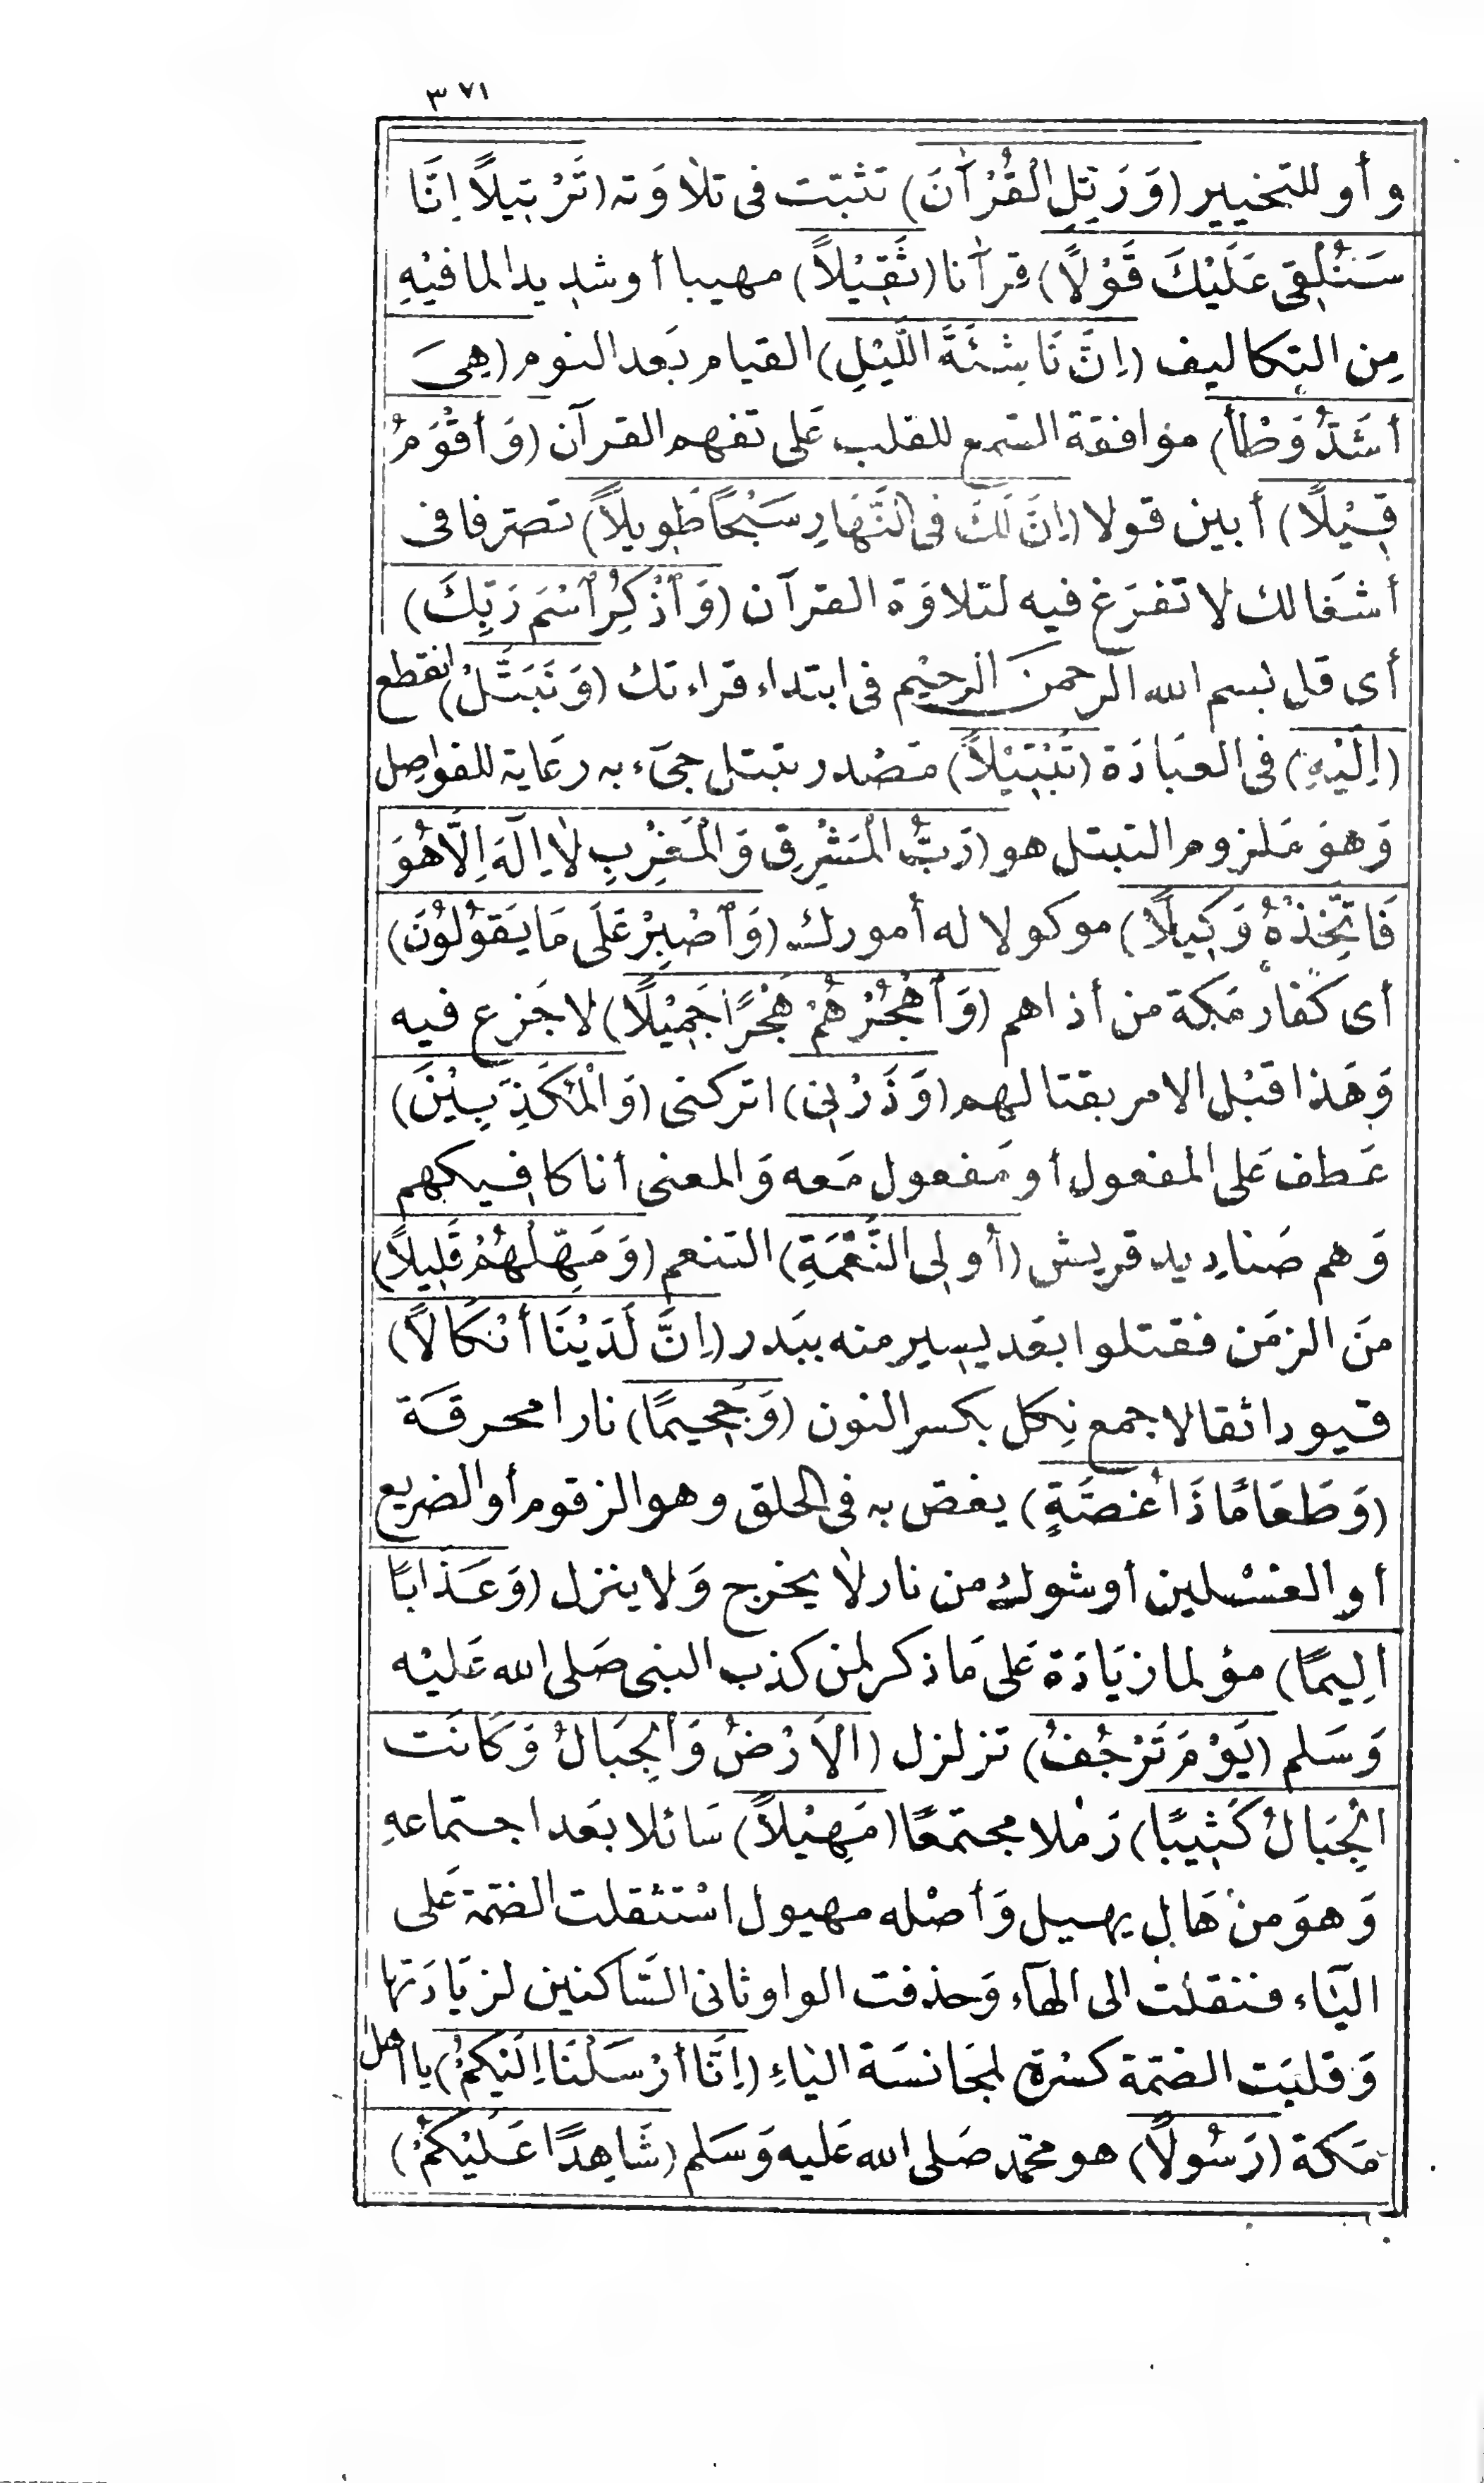 ٣٧١
وأو للتخيير (وَرَتِّلِ الْقُرْآنَ) تثبت فى تلاوَته (تَرْتِيلاً اِنَّا
سَنُلْقِى عَلَيْكَ قَوْلاً) قرآنا (ثَقِيْلاً) مهيبا أوشديدا لما فيْهِ
مِن التكاليف (اِنَّ نَاشِئَةَ اللَّيْلِ) القيام بَعد النوم (هِىَ
أشَدُّ وَطْأً) موافقة السمع للقلب عَلى تفهم القرآن (وَأقْوَمُ
قِيْلاً) أبين قولا (اِنَّ لَكَ فى النَّهَارِ سَبْحًا طَوِيلاً) تصرفا فى
أشغالك لا تفرَغ فيه لتلاوَة القرآن (وَٱذْكُرِ ٱسْمَ رَبِّكَ)
أى قل بسم الله الرحمن الرحيْم فى ابتداء قراءتك (وَتَبَتَّلْ) انقطع
(اِلَيْهِ) فى العبَادَة (تَبْتِيْلاً) مَصْدر بتبتل جىء به رعَاية للفواصِل
وَهوَ مَلزوم التبتل هو (رَبُّ الْمَشْرِقِ وَالْمَغْرِبِ لاَ اِلَهَ اِلَّا هُوَ
فَاتَّخِذْهُ وَكِيلاً) موكولا له أمورك (وَٱصْبِرْ عَلَى مَا يَقُولُوْنَ)
أى كفار مَكة من أذاهم (وَٱهْجُرْهُمْ هَجْرًا جَمِيْلاً) لا جَزع فيه
وَهَذا قبْل الامر بقتالهم (وَذَرْنِى) اتركنى (وَالْمُكَذِّبِيْنَ)
عَطف عَلى المفعول أو مَفعول مَعه وَالمعنى أنا كافيكهم
وَهم صَناديد قريش (أُولِى النَّعْمَةِ) التنعم (وَمَهِّلْهُمْ قَلِيلاً)
مَن الزمَن فقتلوا بعَد يسير منه ببَدر (اِنَّ لَدَيْنَا أنْكَالاً)
قيودا ثقالا جمع نِكل بكسر النون (وَجَحِيمًا) نارا محرقة
(وَطَعَامًا ذَا غُصَّةٍ) يغص به فى الحلق وهو الزقوم أو الضريع
أو الغسْلين أو شوك من نار لا يخرج وَلا ينزل (وَعَذَابًا
اَلِيمًا) مؤلما زيَادَة عَلى مَا ذكر لمن كذب النبى صَلى الله عَليْه
وَسَلم (يَوْمَ تَرْجُفُ) تزلزل (الاَرْضُ وَٱلْجِبَالُ وَكَانَت
الْجِبَالُ كَثِيبًا) رَمْلا مجتمعًا (مَهِيْلاً) سَائلا بَعد اجتماعهِ
وَهوَ منْ هَال يهيل وَأصْله مهيول اسْتثقلت الضمة عَلى
اليَاء فنقلت الى الهآء وَحذفت الواو ثانى السَّاكنين لزيَادَتها
وَقلبَت الضمة كسْرة لمجَانسَة اليَاءِ (اِنَّا أرْسَلْنَا اِلَيْكُمْ) يا أهل
مَكة (رَسُولاً) هو محمّد صَلى الله عَليه وَسَلم (شَاهِدًا عَلَيْكُمْ)